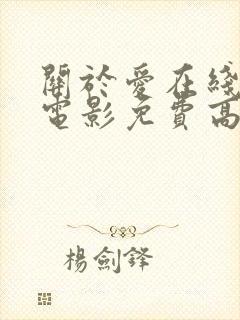 關於愛在綫
電影免費高
楊劍鋒